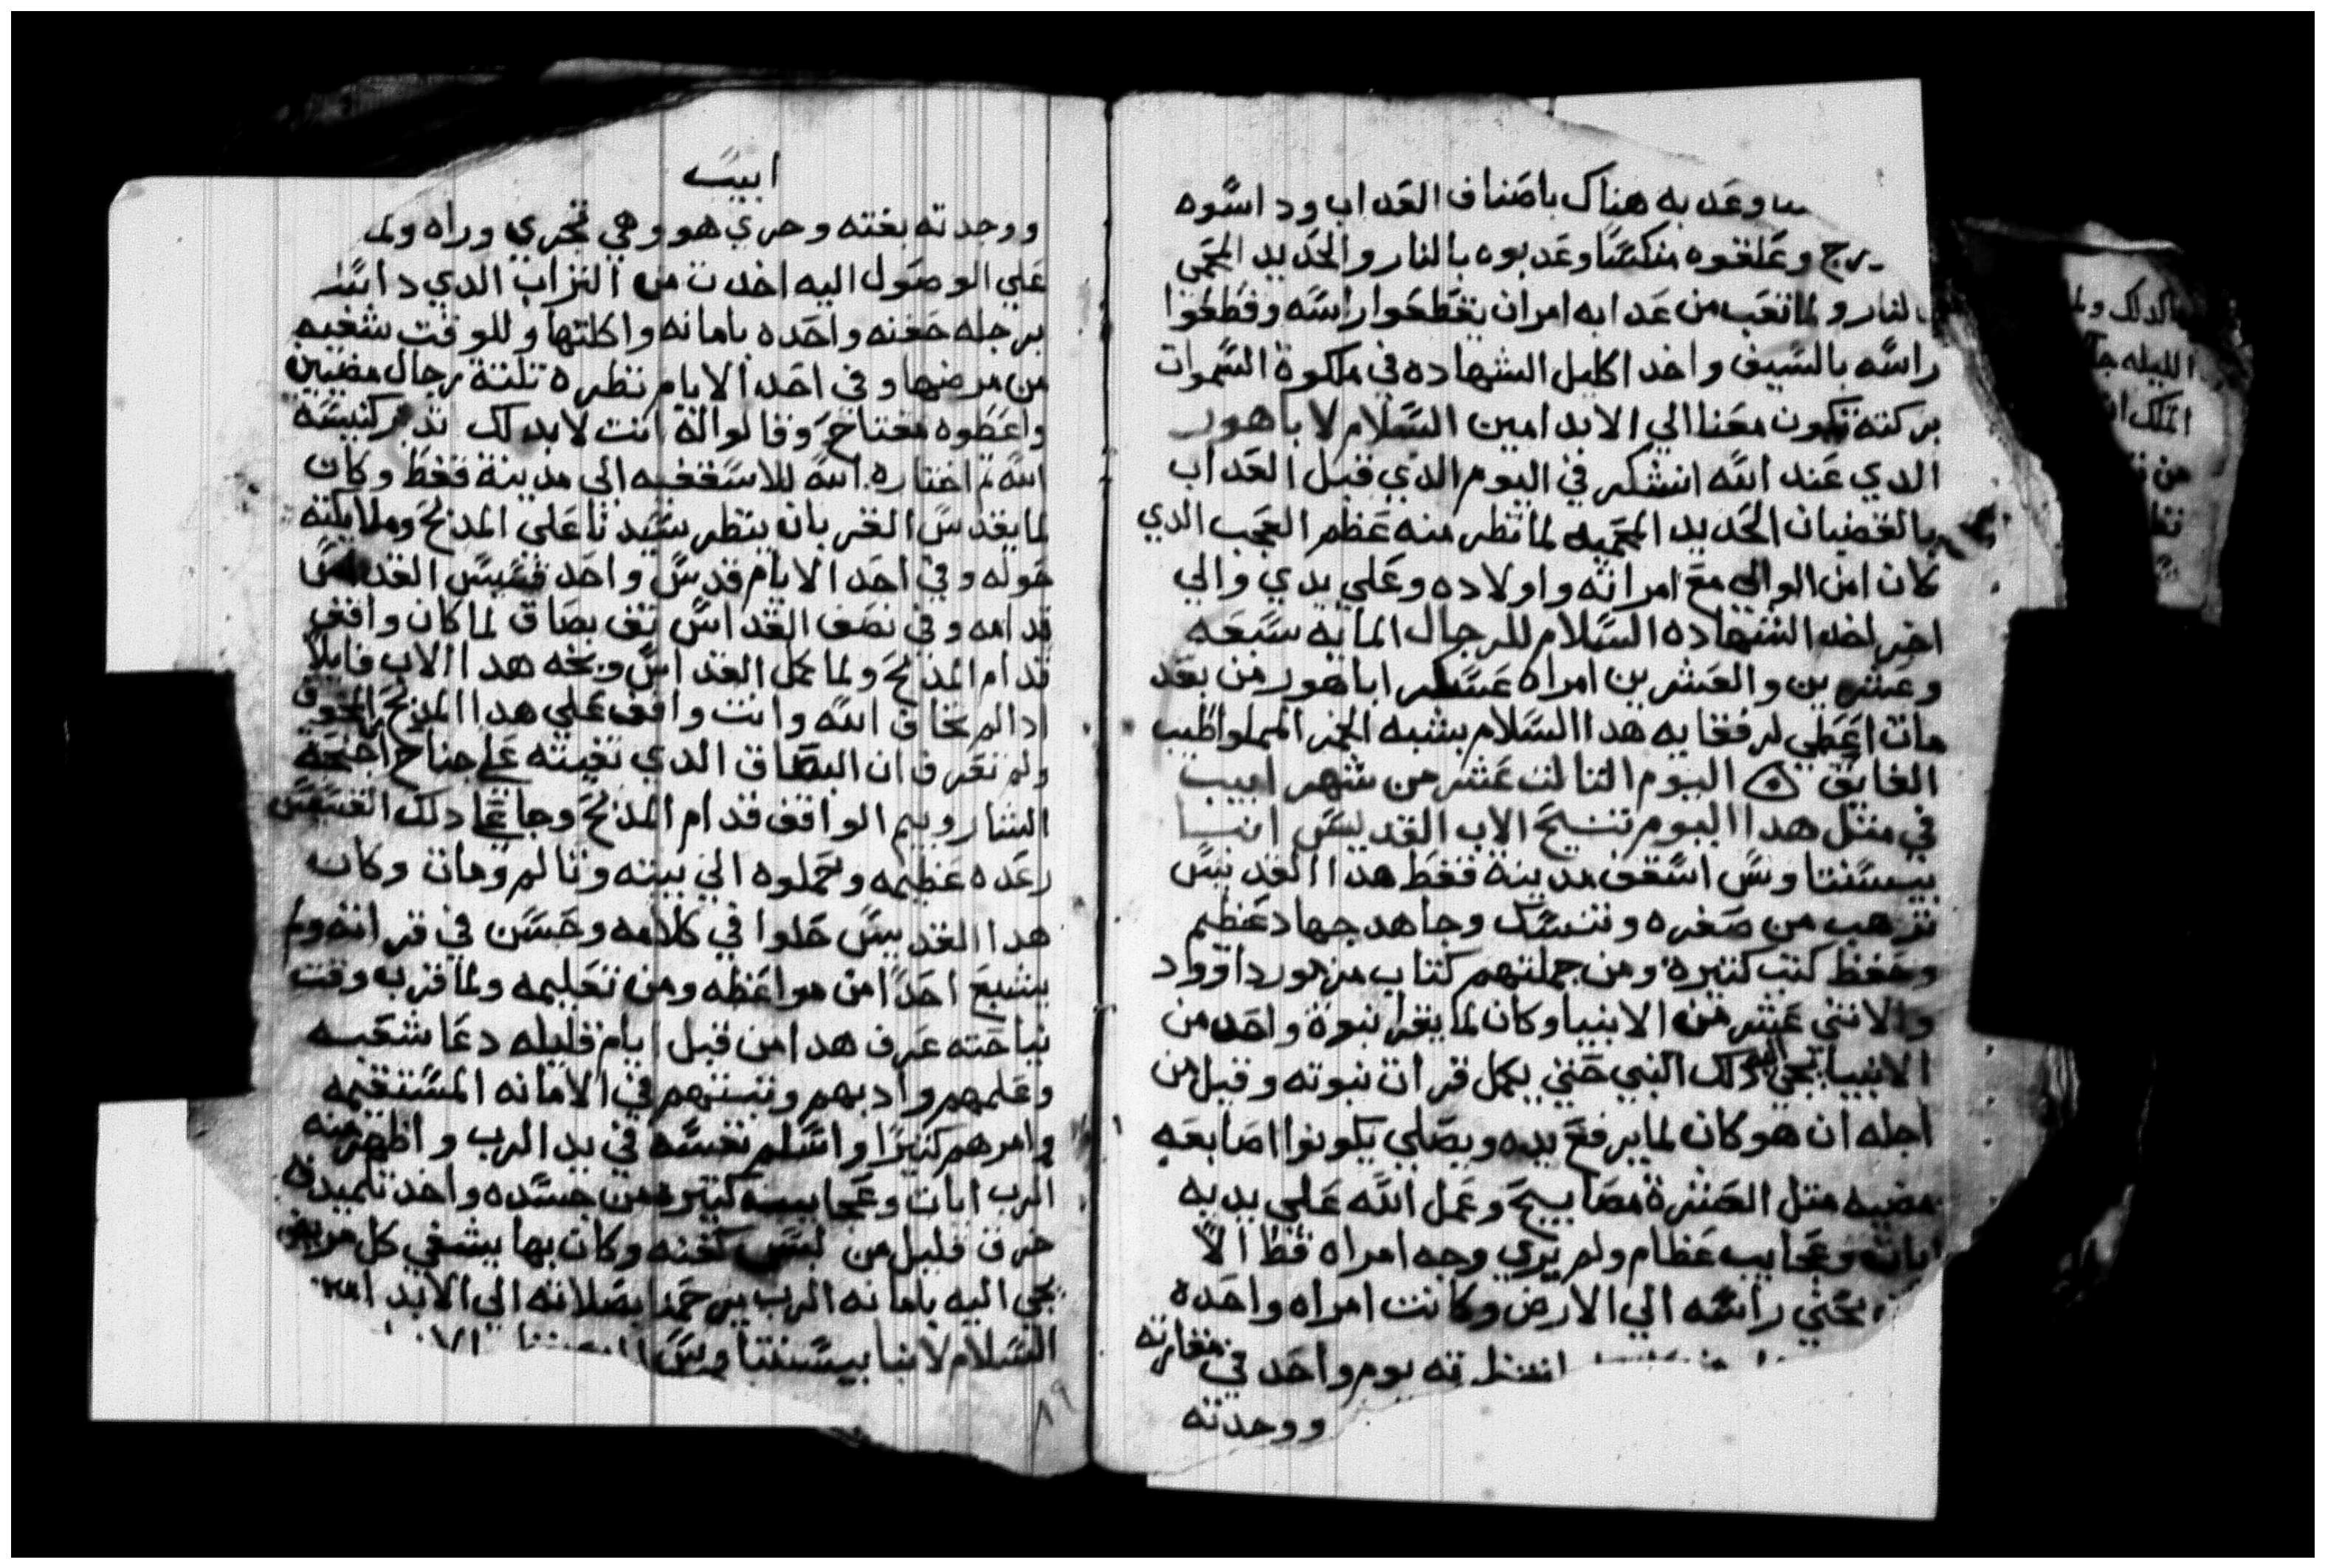 وعدبه هناك باصناف العداب وداسوه
وعلقوه منكسا وعدبوه بالنار والحديد المحمي
بالنار ولما تعب من عدابه امر ان يقطعوا راسه وقطعوا
راسه بالسيف واخد اكليل الشهاده في ملكوة السموات
بركته تكون معنا الي الابد امين السلام لاباهور
الدي عند الله انشكر في اليوم الدي قبل العداب
بالقضبان الحديد المحميه لما نظر منه عظم العجب الدي
كان امن الوالي مع امراته واولاده وعلي يدي والي
اخر اخد الشهاده السلام للرجال المايه سبعه
وعشرين والعشرين امراه عسكر اباهور من بعد
مات اعطي لرفقايه هدا السلام بشبه الخمر المملوا طيب
الفايق ۞ اليوم التالت عشر من شهر ابيب
في متل هدا اليوم تنيح الاب القديس انبا
بيسنتاوس اسقف مدينة قفط هدا القديس
ترهب من صغره وتنسك وجاهد جهاد عظيم
وحفظ كتب كتيرة ومن جملتهم كتاب مزمور داوود
والاتني عشر من الانبيا وكان لما يقرا نبوة واحد من
الانبيا يجي اليه دلك النبي حتي يكمل قرات نبوته وقيل من
اجله ان هو كان لما يرفع يديه ويصلي يكونوا اصابعه
مضيه متل العشرة مصابيح وعمل الله علي يديه
ايات وعجايب عظام ولم يري وجه امراه قط الا
يحني راسه الي الارض وكانت امراه واحده
يوم واحد في مغارته
ووجدته
ابيب
ووجدته بغته وجري هو وهي تجري وراه ولم
علي الوصول اليه اخدت من التراب الدي داس
برجله حفنه واحده بامانه واكلتها وللوقت شفيه
من مرضها وفي احد الايام نظره تلتة رجال مضيين
واعطوه مفتاح وقالوا له انت لابد لك تدبر كنيسة
الله تم اختاره الله للاسقفيه الي مدينة قفط وكان
لما يقدس القربان ينظر سيدنا علي المدبح وملايكته
حوله وفي احد الايام قدس واحد قسيس القداس
قدامه وفي نصف القداس تف بصاق لما كان واقف
قدام المدبح ولما كمل القداس وبخه هدا الاب قايلا
ادا لم تخاف الله وانت واقف علي هدا المدبح المخوف
ولم تعرف ان البصاق الدي تفيته علي جناح اجنحة
الشاروبيم الواقف قدام المدبح وجا علي دلك القسيس
رعده عظيمه وحملوه الي بيته وتالم ومات وكان
هدا القديس حلوا في كلامه وحسن في قراته ولم
يشبع احدا من مواعظه ومن تعليمه ولما قرب وقت
نياحته عرف هدا من قبل ايام قليله دعا شعبه
وعلمهم وادبهم وتبتهم في الامانه المستقيمه
وامرهم كتيرا واسلم نفسه في يد الرب واظهر منه
الرب ايات وعجايب كتيره من جسده واخد تلميده
خرق قليل من لبس كفنه وكان بها يشفي كل مريض
يجي اليه بامانه الرب يرحمنا بصلاته الي الابد امين
السلام لانبا بيسنتاوس
٨٩